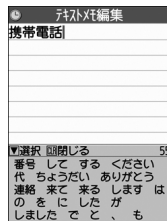 テキストメモ編集
携帯電話
▼選択 閉じる 55
番号 して する ください
代 ちょうだい ありがとう
連絡 来て 来る します は
の を に した が
しました で と 、 も